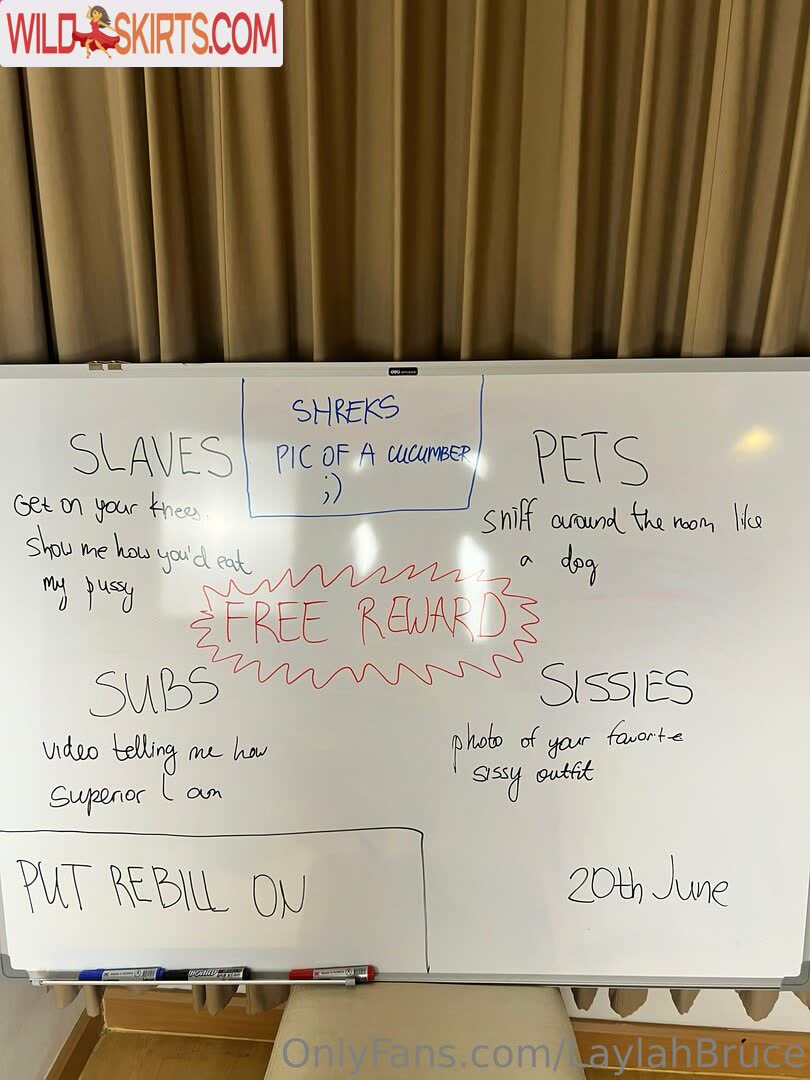 WILDSKIRTS.COM
SHREKS
PIC OF A CUCUMBER
;)
SLAVES
Get on your knees.
Show me how you'd eat
my pussy
PETS
sniff around the room like
a dog
FREE REWARD
SUBS
video telling me how
superior I am
SISSIES
photo of your favorite
sissy outfit
PUT REBILL ON
20th June
OnlyFans.com/LaylahBruce